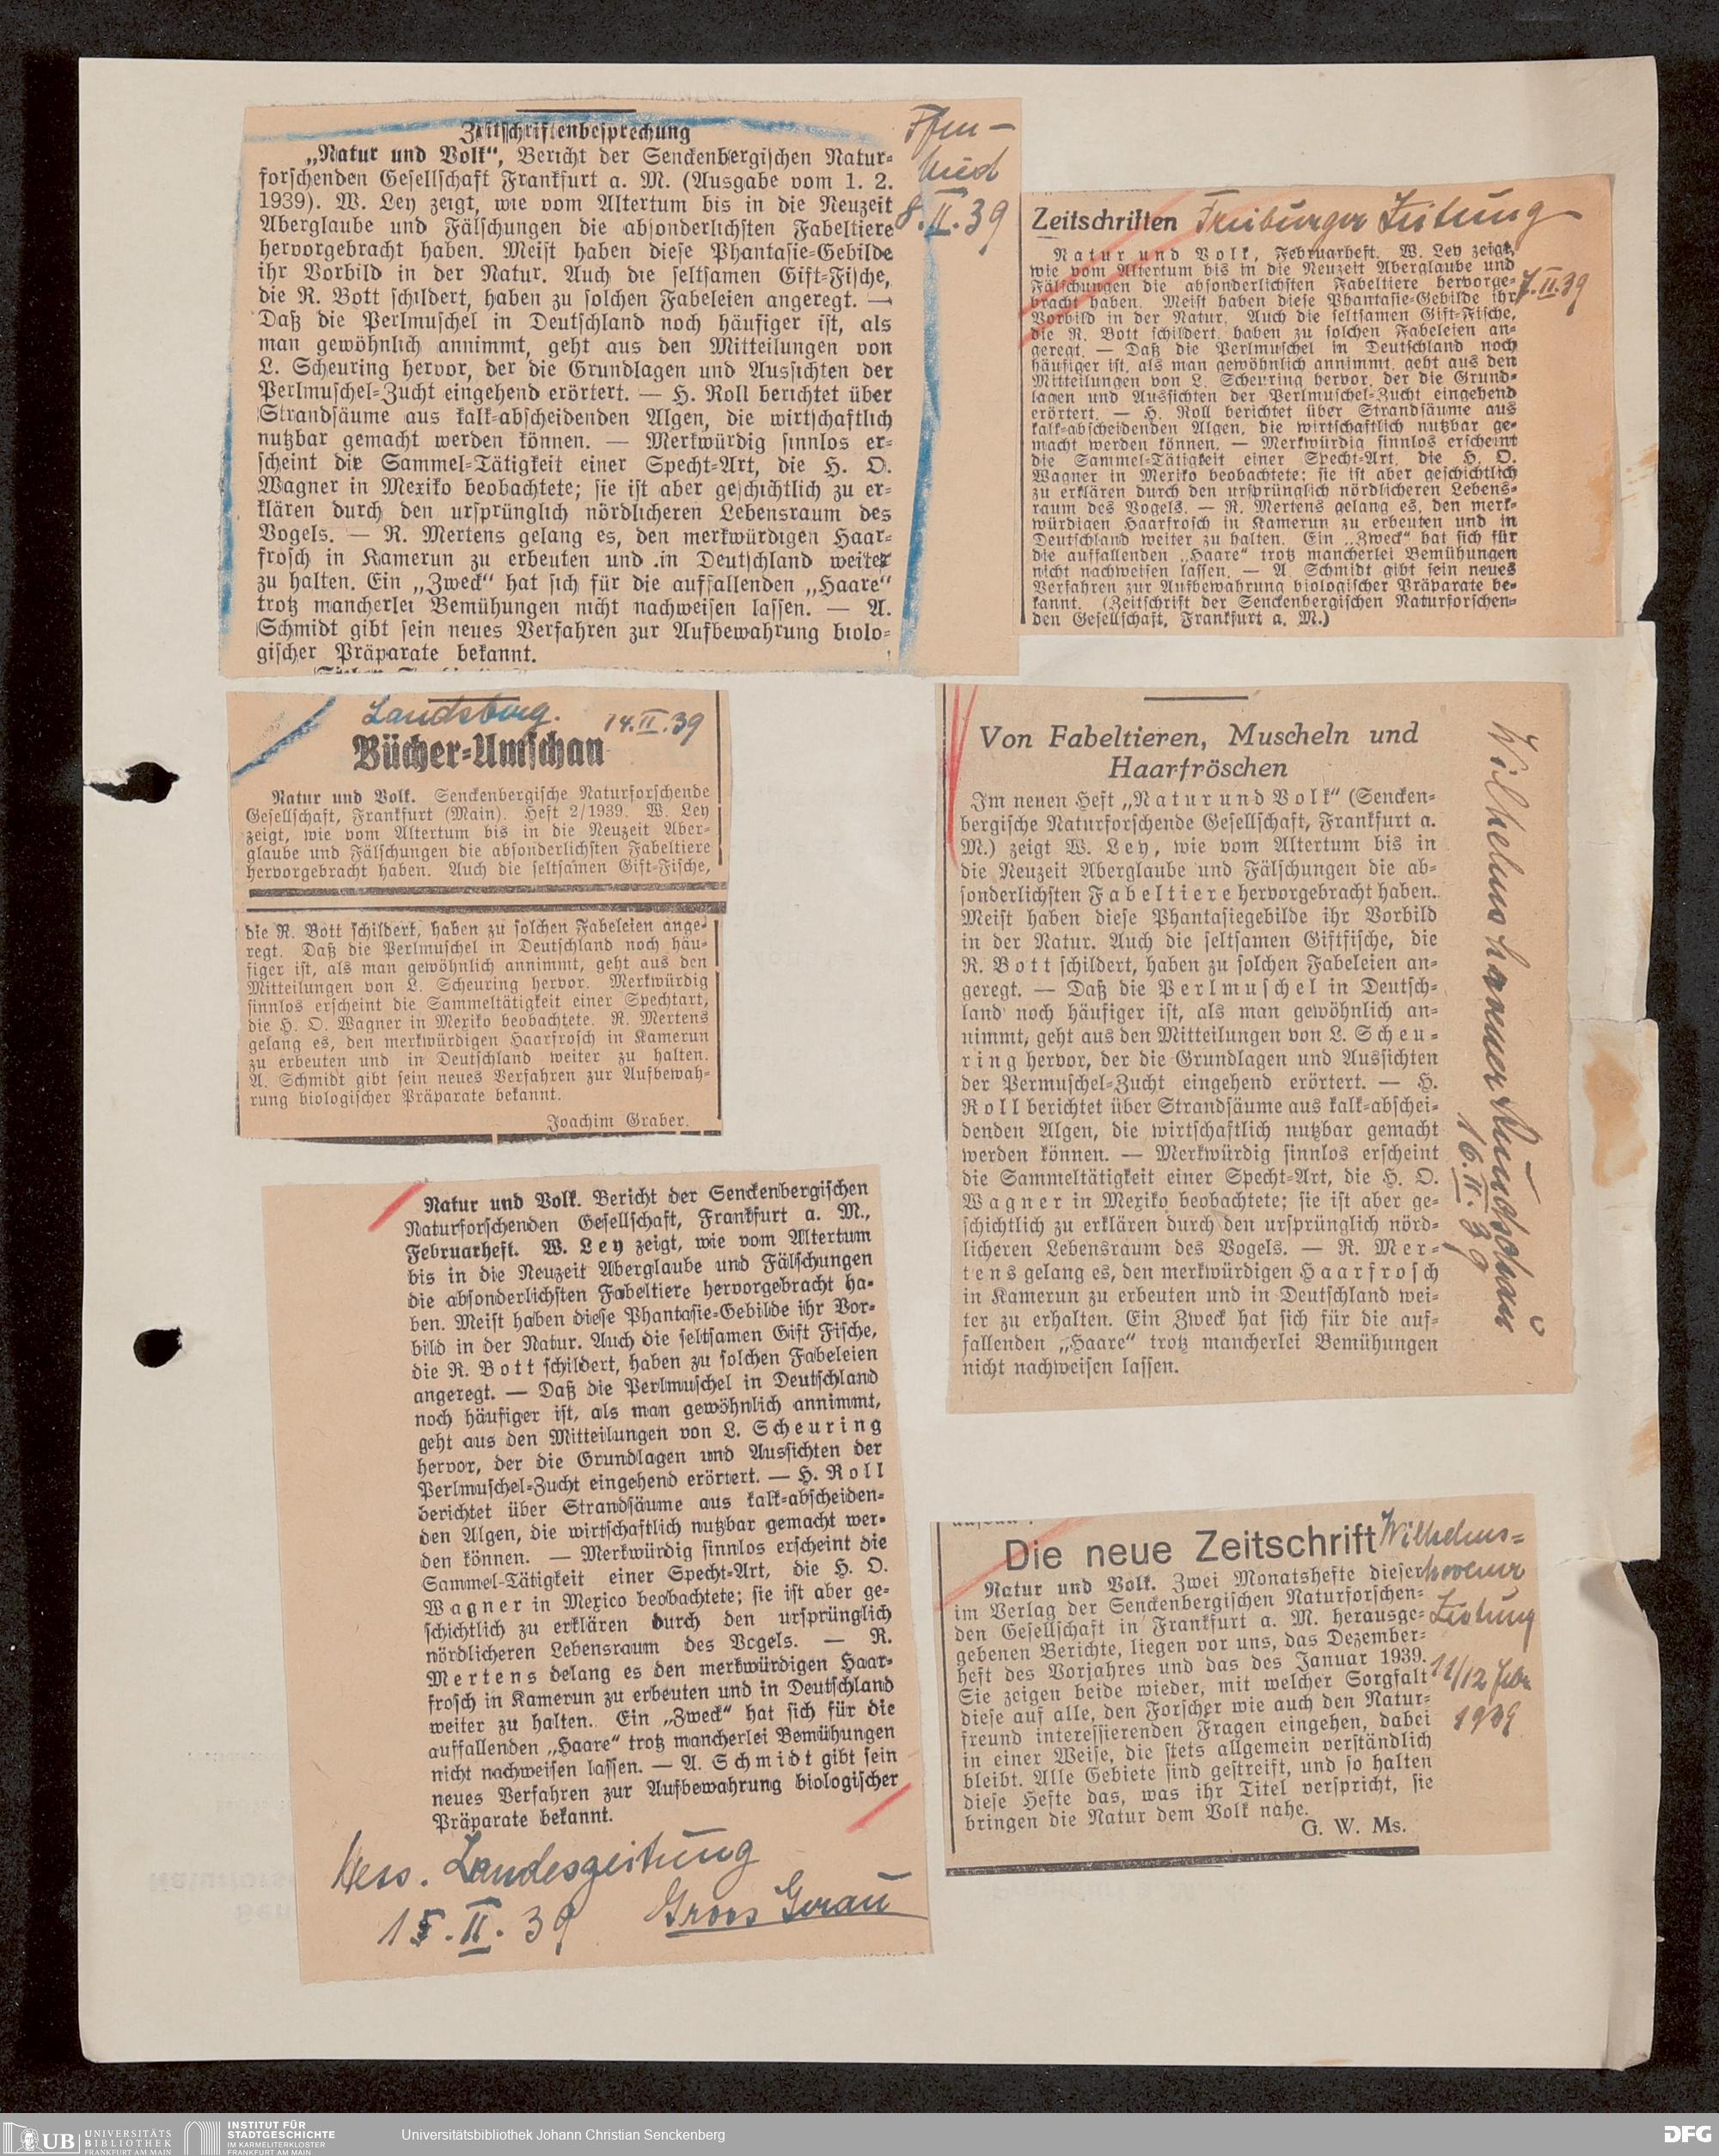 Zeitschriftenbesprechung
„Natur und Volk“, Bericht der Senckenbergischen Natur-
forschenden Gesellschaft Frankfurt a. M. (Ausgabe vom 1. 2.
1939). W. Ley zeigt, wie vom Altertum bis in die Neuzeit
Aberglaube und Fälschungen die absonderlichsten Fabeltiere
hervorgebracht haben. Meist haben diese Phantasie-Gebilde
ihr Vorbild in der Natur. Auch die seltsamen Gift-Fische,
die R. Bott schildert, haben zu solchen Fabeleien angeregt. —
Daß die Perlmuschel in Deutschland noch häufiger ist, als
man gewöhnlich annimmt, geht aus den Mitteilungen von
L. Scheuring hervor, der die Grundlagen und Aussichten der
Perlmuschel-Zucht eingehend erörtert. — H. Roll berichtet über
Strandsäume aus kalk-abscheidenden Algen, die wirtschaftlich
nutzbar gemacht werden können. — Merkwürdig sinnlos er-
scheint die Sammel-Tätigkeit einer Specht-Art, die H. O.
Wagner in Mexiko beobachtete; sie ist aber geschichtlich zu er-
klären durch den ursprünglich nördlicheren Lebensraum des
Vogels. — R. Mertens gelang es, den merkwürdigen Haar-
frosch in Kamerun zu erbeuten und in Deutschland weiter
zu halten. Ein „Zweck“ hat sich für die auffallenden „Haare“
trotz mancherlei Bemühungen nicht nachweisen lassen. — A.
Schmidt gibt sein neues Verfahren zur Aufbewahrung biolo-
gischer Präparate bekannt.
8.II.39
Zeitschriften Freiburger Zeitung
7.II.39
Natur und Volk, Februarheft. W. Ley zeigt,
wie vom Altertum bis in die Neuzeit Aberglaube und
Fälschungen die absonderlichsten Fabeltiere hervorge-
bracht haben. Meist haben diese Phantasie-Gebilde ihr
Vorbild in der Natur. Auch die seltsamen Gift-Fische,
die R. Bott schildert, haben zu solchen Fabeleien an-
geregt. — Daß die Perlmuschel in Deutschland noch
häufiger ist, als man gewöhnlich annimmt, geht aus den
Mitteilungen von L. Scheuring hervor, der die Grund-
lagen und Aussichten der Perlmuschel-Zucht eingehend
erörtert. — H. Roll berichtet über Strandsäume aus
kalk-abscheidenden Algen, die wirtschaftlich nutzbar ge-
macht werden können. — Merkwürdig sinnlos erscheint
die Sammel-Tätigkeit einer Specht-Art, die H. O.
Wagner in Mexiko beobachtete; sie ist aber geschichtlich
zu erklären durch den ursprünglich nördlicheren Lebens-
raum des Vogels. — R. Mertens gelang es, den merk-
würdigen Haarfrosch in Kamerun zu erbeuten und in
Deutschland weiter zu halten. Ein „Zweck“ hat sich für
die auffallenden „Haare“ trotz mancherlei Bemühungen
nicht nachweisen lassen. — A. Schmidt gibt sein neues
Verfahren zur Aufbewahrung biologischer Präparate be-
kannt. (Zeitschrift der Senckenbergischen Naturforschen-
den Gesellschaft, Frankfurt a. M.)
Landsberg. 14.II.39
Bücher-Umschau
Natur und Volk. Senckenbergische Naturforschende
Gesellschaft, Frankfurt (Main). Heft 2/1939. W. Ley
zeigt, wie vom Altertum bis in die Neuzeit Aber-
glaube und Fälschungen die absonderlichsten Fabeltiere
hervorgebracht haben. Auch die seltsamen Gift-Fische,
die R. Bott schildert, haben zu solchen Fabeleien ange-
regt. Daß die Perlmuschel in Deutschland noch häu-
figer ist, als man gewöhnlich annimmt, geht aus den
Mitteilungen von L. Scheuring hervor. Merkwürdig
sinnlos erscheint die Sammeltätigkeit einer Spechtart,
die H. O. Wagner in Mexiko beobachtete. R. Mertens
gelang es, den merkwürdigen Haarfrosch in Kamerun
zu erbeuten und in Deutschland weiter zu halten.
A. Schmidt gibt sein neues Verfahren zur Aufbewah-
rung biologischer Präparate bekannt.
Joachim Graber.
Von Fabeltieren, Muscheln und
Haarfröschen
Im neuen Heft „Natur und Volk“ (Sencken-
bergische Naturforschende Gesellschaft, Frankfurt a.
M.) zeigt W. Ley, wie vom Altertum bis in
die Neuzeit Aberglaube und Fälschungen die ab-
sonderlichsten Fabeltiere hervorgebracht haben.
Meist haben diese Phantasiegebilde ihr Vorbild
in der Natur. Auch die seltsamen Giftfische, die
R. Bott schildert, haben zu solchen Fabeleien an-
geregt. — Daß die Perlmuschel in Deutsch-
land noch häufiger ist, als man gewöhnlich an-
nimmt, geht aus den Mitteilungen von L. Scheu-
ring hervor, der die Grundlagen und Aussichten
der Permuschel-Zucht eingehend erörtert. — H.
Roll berichtet über Strandsäume aus kalk-abschei-
denden Algen, die wirtschaftlich nutzbar gemacht
werden können. — Merkwürdig sinnlos erscheint
die Sammeltätigkeit einer Specht-Art, die H. O.
Wagner in Mexiko beobachtete; sie ist aber ge-
schichtlich zu erklären durch den ursprünglich nörd-
licheren Lebensraum des Vogels. — R. Mer-
tens gelang es, den merkwürdigen Haarfrosch
in Kamerun zu erbeuten und in Deutschland wei-
ter zu erhalten. Ein Zweck hat sich für die auf-
fallenden „Haare“ trotz mancherlei Bemühungen
nicht nachweisen lassen.
Wilhelmshavener Rundschau
16.II.39
Natur und Volk. Bericht der Senckenbergischen
Naturforschenden Gesellschaft, Frankfurt a. M.,
Februarheft. W. Ley zeigt, wie vom Altertum
bis in die Neuzeit Aberglaube und Fälschungen
die absonderlichsten Fabeltiere hervorgebracht ha-
ben. Meist haben diese Phantasie-Gebilde ihr Vor-
bild in der Natur. Auch die seltsamen Gift Fische,
die R. Bott schildert, haben zu solchen Fabeleien
angeregt. — Daß die Perlmuschel in Deutschland
noch häufiger ist, als man gewöhnlich annimmt,
geht aus den Mitteilungen von L. Scheuring
hervor, der die Grundlagen und Aussichten der
Perlmuschel-Zucht eingehend erörtert. — H. Roll
berichtet über Strandsäume aus kalk-abscheiden-
den Algen, die wirtschaftlich nutzbar gemacht wer-
den können. — Merkwürdig sinnlos erscheint die
Sammel-Tätigkeit einer Specht-Art, die H. O.
Wagner in Mexico beobachtete; sie ist aber ge-
schichtlich zu erklären durch den ursprünglich
nördlicheren Lebensraum des Vogels. — R.
Mertens delang es den merkwürdigen Haar-
frosch in Kamerun zu erbeuten und in Deutschland
weiter zu halten. Ein „Zweck“ hat sich für die
auffallenden „Haare“ trotz mancherlei Bemühungen
nicht nachweisen lassen. — A. Schmidt gibt sein
neues Verfahren zur Aufbewahrung biologischer
Präparate bekannt.
Hess. Landeszeitung
15.II.39 Gross Gerau
Die neue Zeitschrift
Wilhelms-
havener
Zeitung
11/12 Febr
1939
Natur und Volk. Zwei Monatshefte dieser
im Verlag der Senckenbergischen Naturforschen-
den Gesellschaft in Frankfurt a. M. herausge-
gebenen Berichte, liegen vor uns, das Dezember-
heft des Vorjahres und das des Januar 1939.
Sie zeigen beide wieder, mit welcher Sorgfalt
diese auf alle, den Forscher wie auch den Natur-
freund interessierenden Fragen eingehen, dabei
in einer Weise, die stets allgemein verständlich
bleibt. Alle Gebiete sind gestreift, und so halten
diese Hefte das, was ihr Titel verspricht, sie
bringen die Natur dem Volk nahe.
G. W. Ms.
UB UNIVERSITÄTS
BIBLIOTHEK
FRANKFURT AM MAIN
INSTITUT FÜR
STADTGESCHICHTE
IM KARMELITERKLOSTER
FRANKFURT AM MAIN
Universitätsbibliothek Johann Christian Senckenberg
DFG